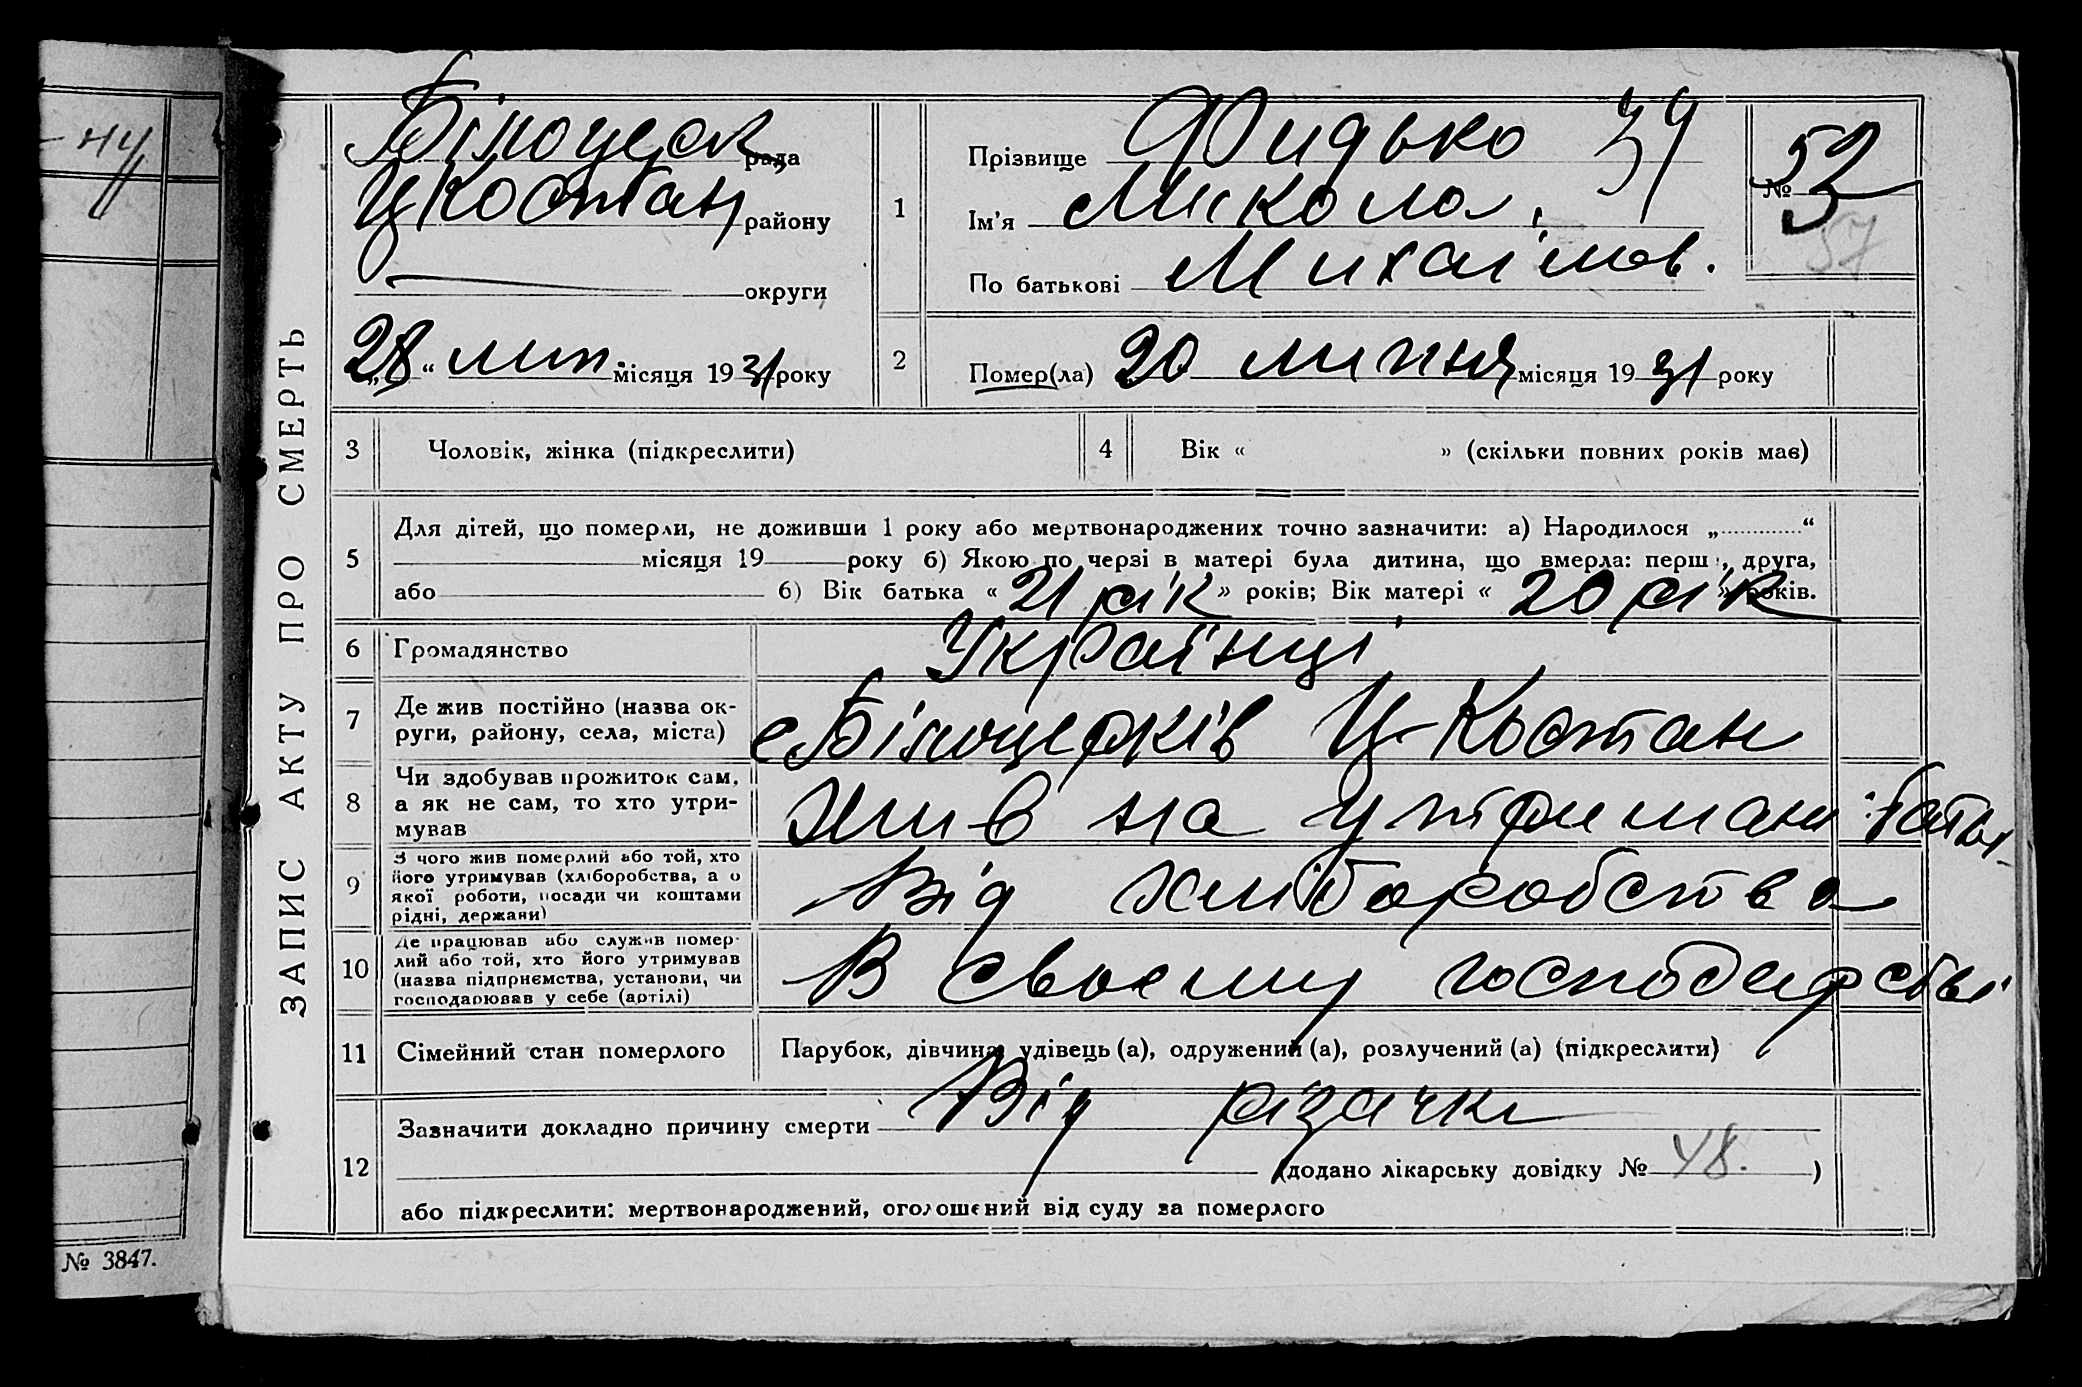 ЗАПИС АКТУ ПРО СМЕРТЬ
Білоцерк. рада
ЦКостян района
округи
„28“ лип. місяця 1931 року
1
Прізвище Фидько 39
Ім'я Микола
По батькові Михайлов.
№ 52
57
2
Помер(ла) 20 липня місяця 1931 року
3 Чоловік, жінка (підкреслити)
4 Вік « » (скільки повних років має)
5 Для дітей, що померли, не доживши 1 року або мертвонароджених точно зазначити: а) Народилося „ “
місяця 19 року б) Якою по черзі в матері була дитина, що вмерла: перша, друга,
або б) Вік батька « 21 рік » років; Вік матері « 20 рік » років.
6 Громадянство Українці
7 Де жив постійно (назва округи, району, села, міста) с Білоцерків Ц-Костян
8 Чи здобував прожиток сам, а як не сам, то хто утримував Жив на утриман батьк
9 З чого жив померлий або той, хто його утримував (хліборобства, а о якої роботи, посади чи коштами рідні, держави) Від хліборобства
10 Де працював або служив померлий або той, хто його утримував (назва підприємства, установи, чи господарював у себе (артілі) В своєму господарстві
11 Сімейний стан померлого Парубок, дівчина, удівець (а), одружений (а), розлучений (а) (підкреслити)
12 Зазначити докладно причину смерти Від різачки
(додано лікарську довідку № 48. )
або підкреслити: мертвонароджений, оголошений від суду за померлого
№ 3847.